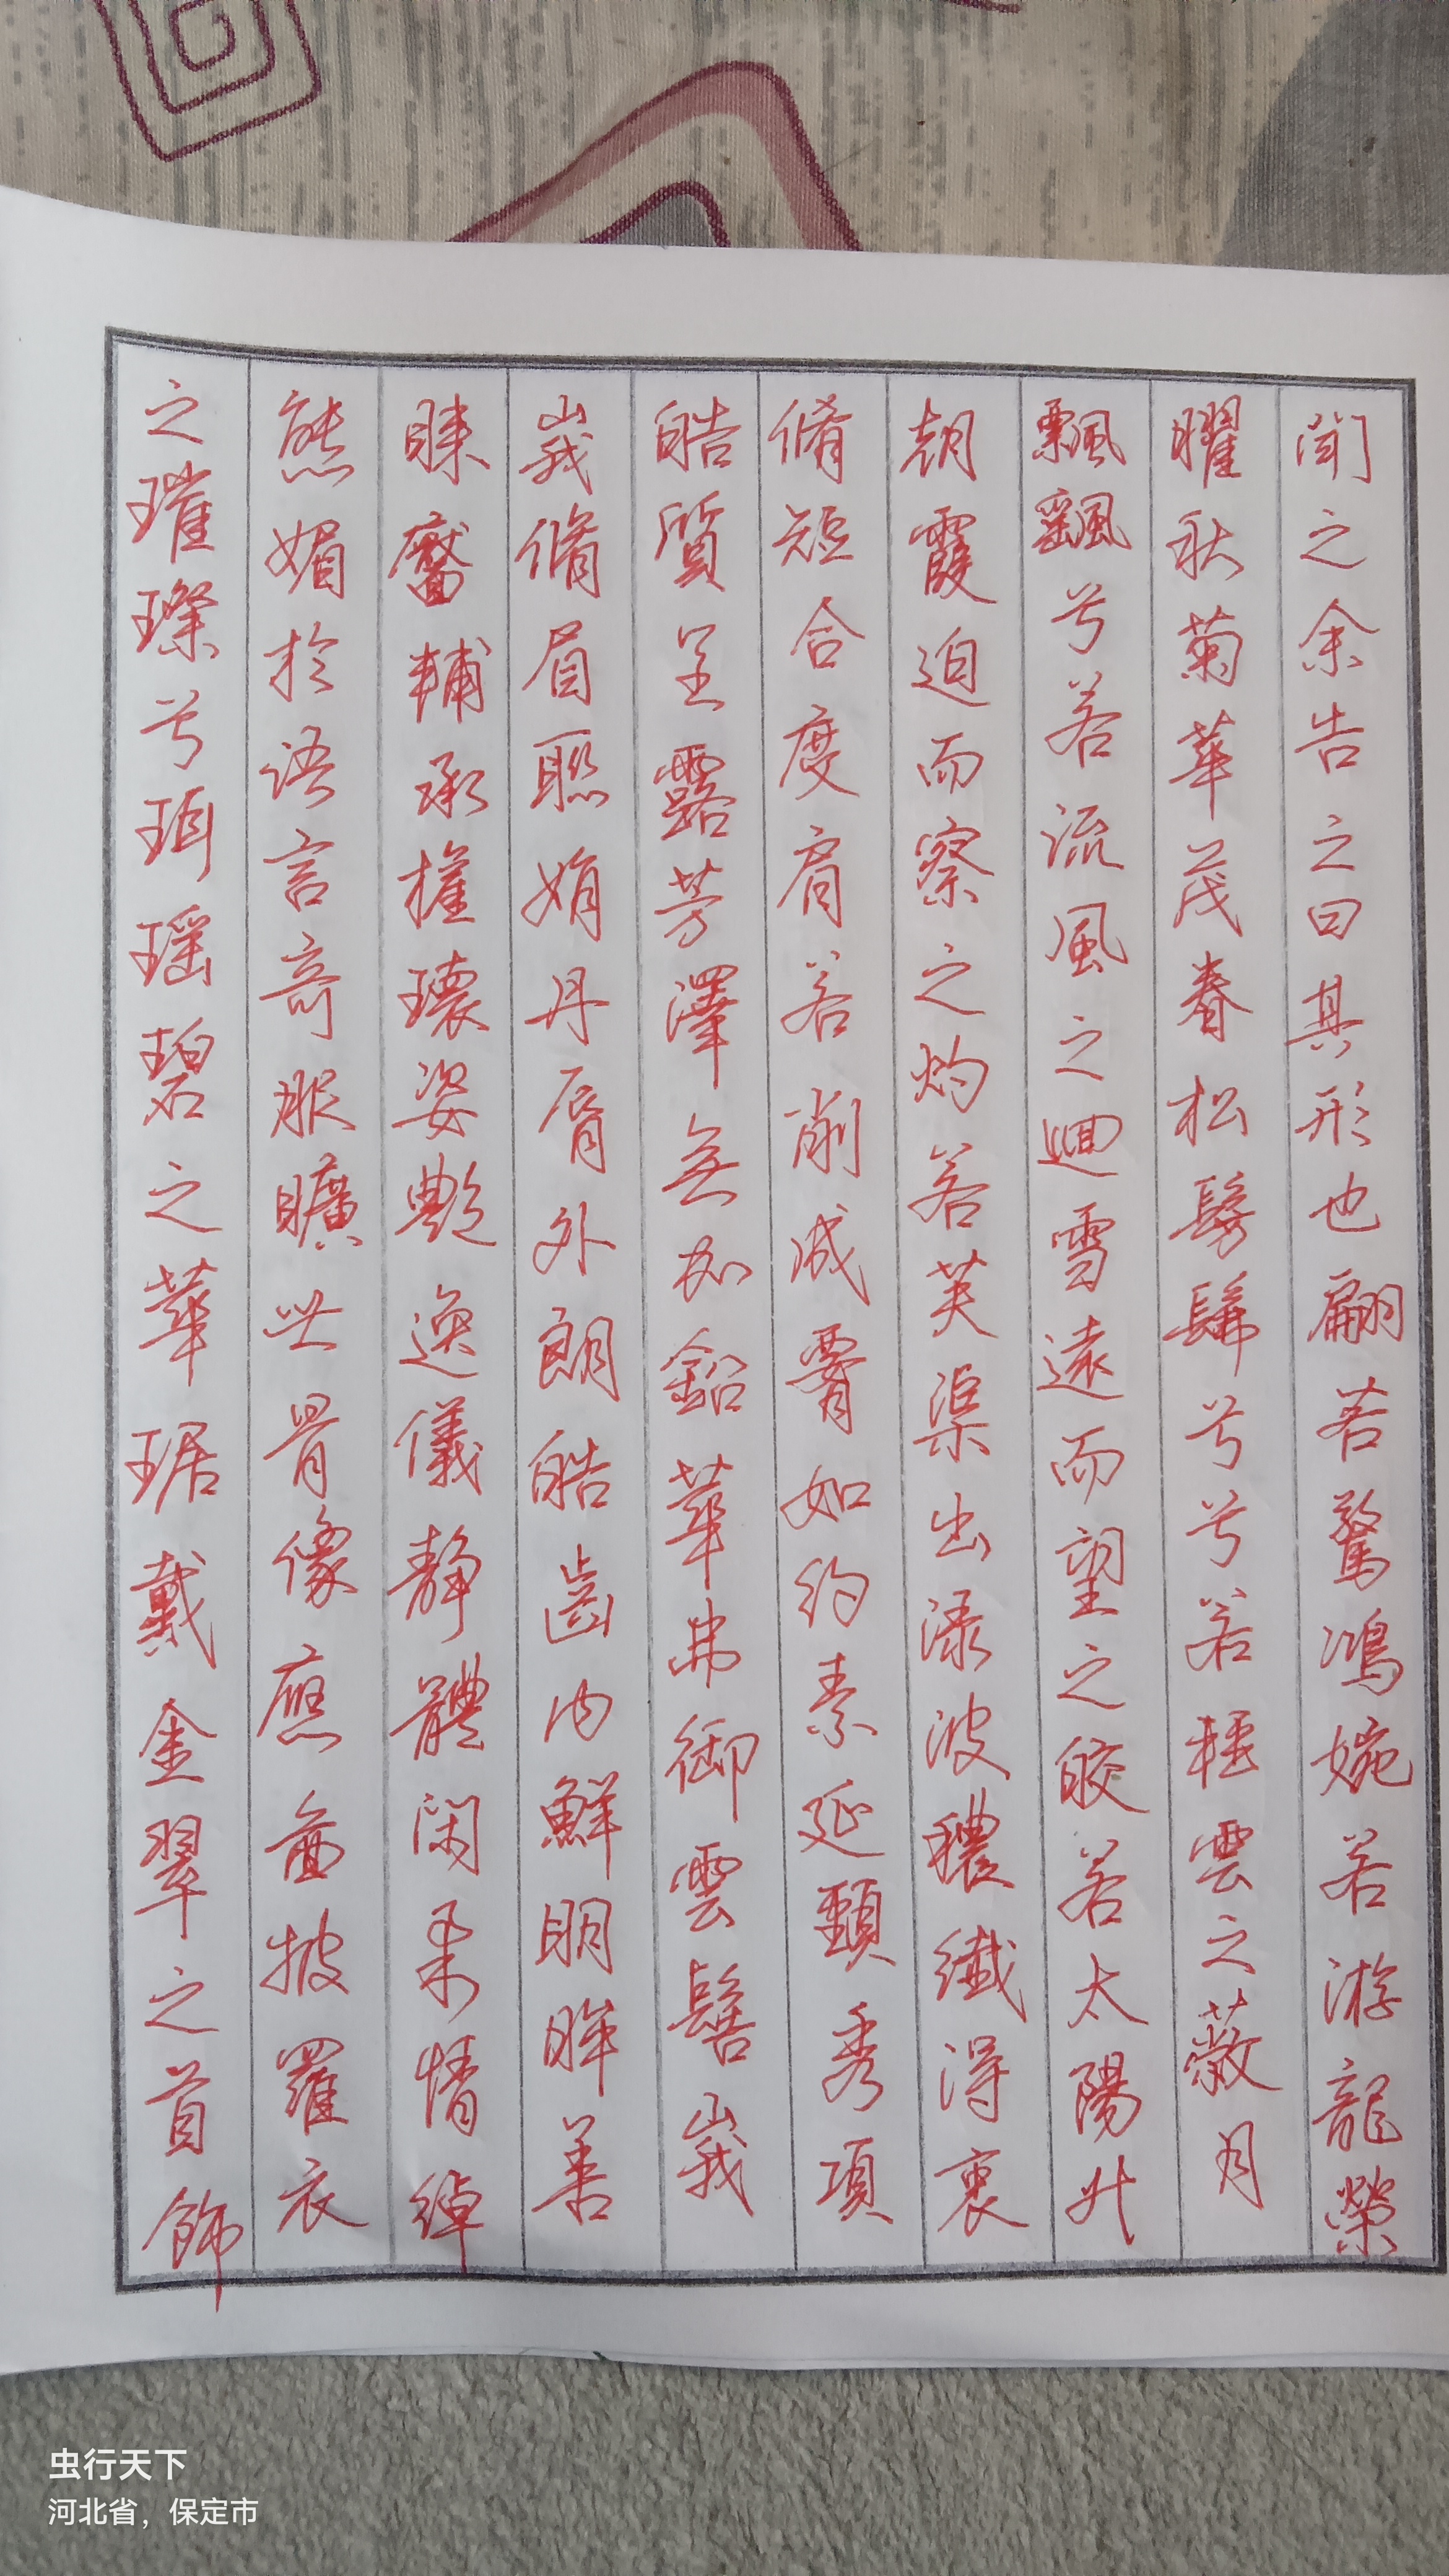 聞之余告之曰其形也翩若驚鴻婉若游龍榮
曜秋菊華茂春松髣髴兮兮若輕雲之蔽月
飄颻兮若流風之迴雪遠而望之皎若太陽升
朝霞迫而察之灼若芙渠出淥波穠纖得衷
脩短合度肩若削成腰如約素延頸秀項
皓質呈露芳澤無加鉛華弗御雲髻峩
峩脩眉聯娟丹脣外朗皓齒內鮮明眸善
睞靨輔承權瓌姿艷逸儀静體閑柔情綽
態媚於語言奇服曠世骨像應圖披羅衣
之璀璨兮珥瑶碧之華琚戴金翠之首飾
虫行天下
河北省，保定市